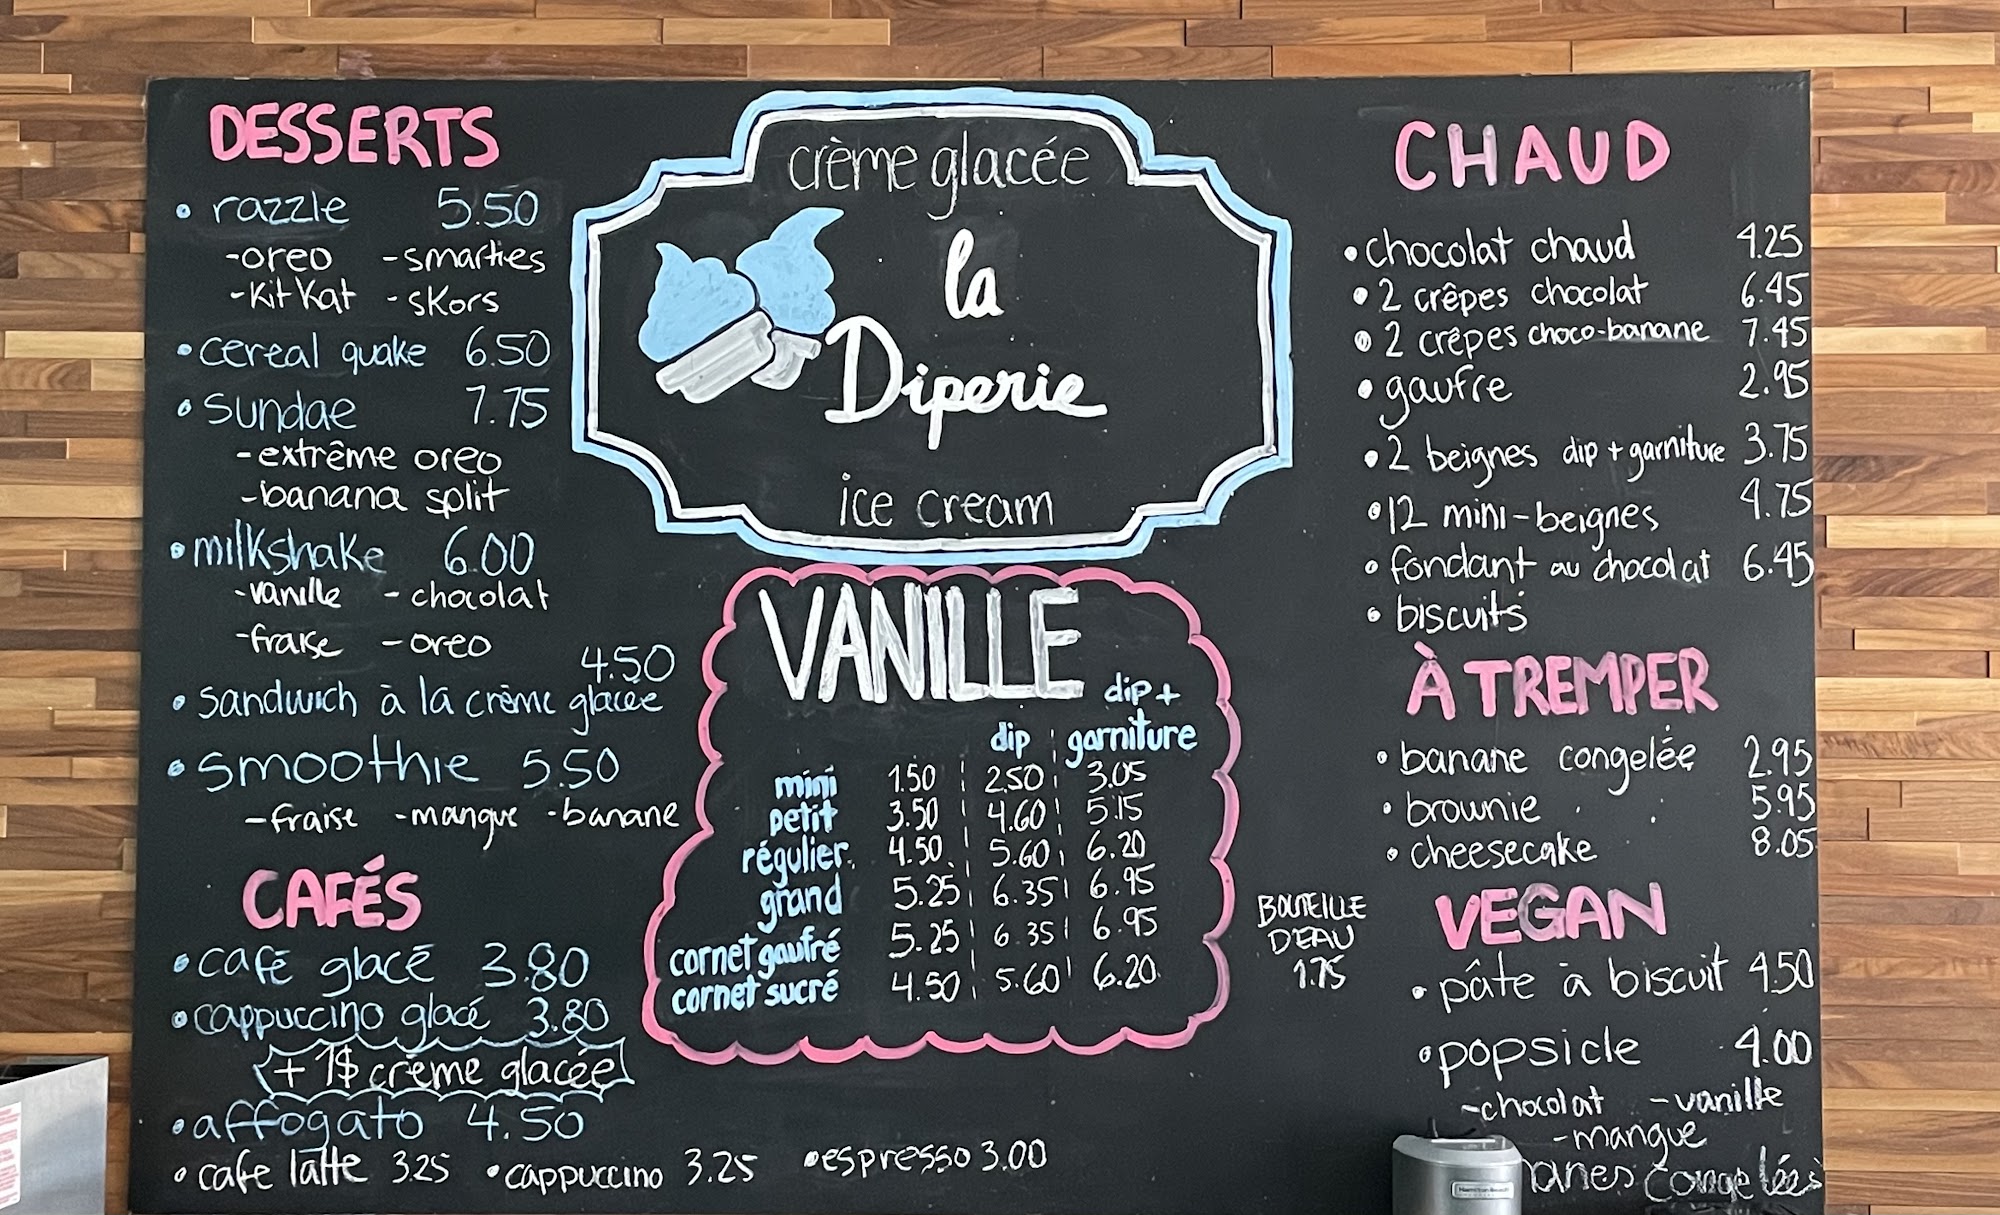 DESSERTS
• razzle 5.50
-oreo -smarties
-KitKat -skors
• cereal quake 6.50
• sundae 7.75
-extrême oreo
-banana split
• milkshake 6.00
-vanille -chocolat
-fraise -oreo
4.50
• sandwich à la crème glacée
• smoothie 5.50
-fraise -mangue -banane
CAFÉS
• café glacé 3.80
• cappuccino glacé 3.80
+1$ crème glacée
• affogato 4.50
• cafe latte 3.25 • cappuccino 3.25 • espresso 3.00
crème glacée
la
Diperie
ice cream
VANILLE
dip dip + garniture
mini 1.50 2.50 3.05
petit 3.50 4.60 5.15
régulier 4.50 5.60 6.20
grand 5.25 6.35 6.95
cornet gaufré 5.25 6.35 6.95
cornet sucré 4.50 5.60 6.20
BOUTEILLE
D'EAU
1.75
CHAUD
• chocolat chaud 4.25
• 2 crêpes chocolat 6.45
• 2 crêpes choco-banane 7.45
• gaufre 2.95
• 2 beignes dip + garniture 3.75
• 12 mini-beignes 4.75
• fondant au chocolat 6.45
• biscuits
À TREMPER
• banane congelée 2.95
• brownie 5.95
• cheesecake 8.05
VEGAN
• pâte à biscuit 4.50
• popsicle 4.00
-chocolat -vanille
-mangue
congelées
Hamilton Beach